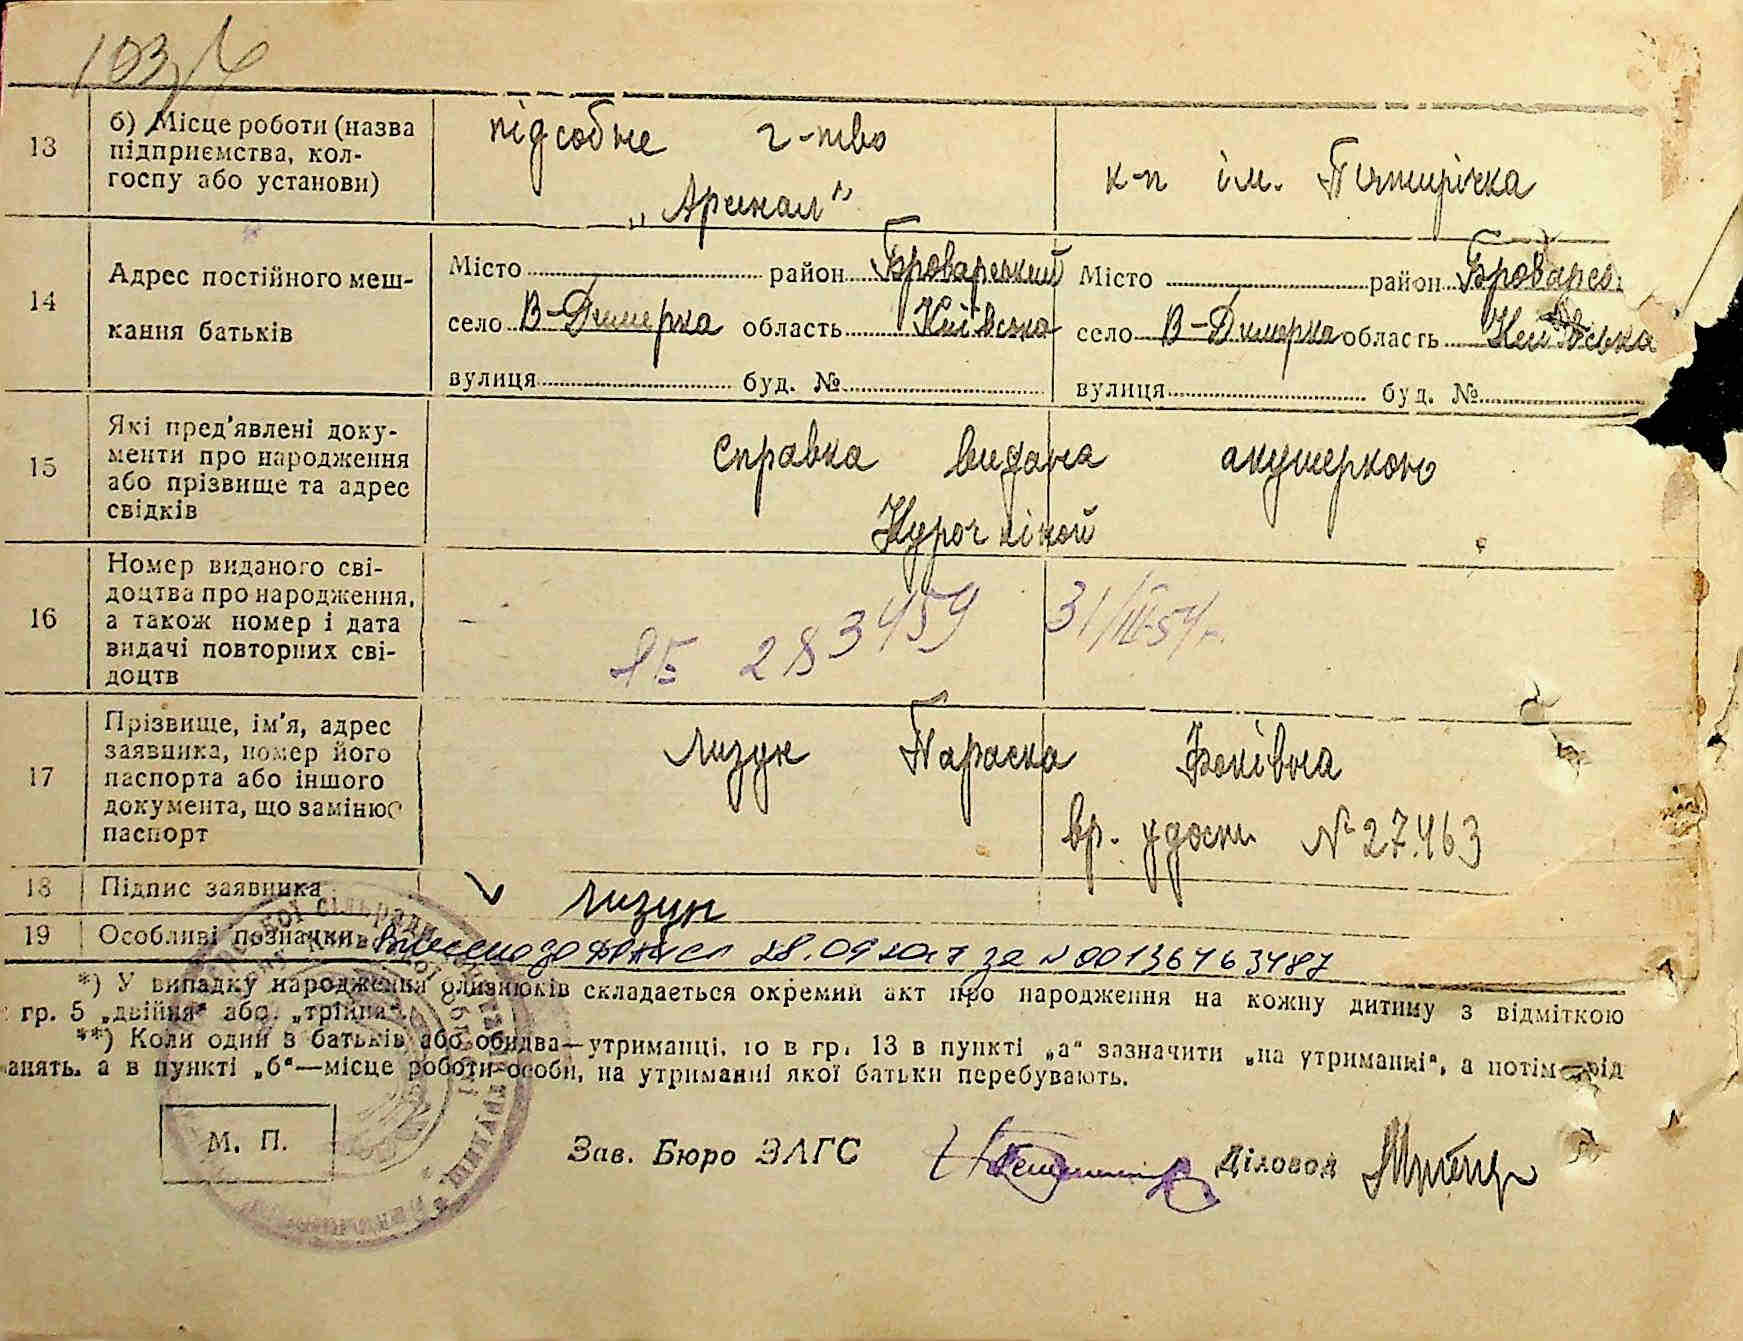 103
13
б) Місце роботи (назва
підприємства, кол-
госпу або установи)
підсобне г-тво
„Арсенал"
к-п ім. Пятирічка
14
Адрес постійного меш-
кання батьків
Місто район Броварський
село В-Димерка область Київська
вулиця буд. №
Місто район Броварсь.
село В-Димерка область Київська
вулиця буд. №
15
Які пред'явлені доку-
менти про народження
або прізвище та адрес
свідків
справка видана акушеркою
Курочкіной
16
Номер виданого сві-
доцтва про народження,
а також номер і дата
видачі повторних сві-
доцтв
283459 31/III-54г.
17
Прізвище, ім'я, адрес
заявника, номер його
паспорта або іншого
документа, що замінює
паспорт
Лизун Параска Фоківна
вр. удост. № 27.463
18
Підпис заявника
Лизун
19
Особливі позначки
28.09 за N 00136463487
*) У випадку народження близнюків складається окремий акт про народження на кожну дитину з відміткою
гр. 5 „двійня" або „трійня".
**) Коли один з батьків або обидва—утриманці, то в гр. 13 в пункті „а" зазначити „на утриманні", а потім рід
анять, а в пункті „б"—місце роботи особи, на утриманні якої батьки перебувають.
М. П.
Зав. Бюро ЗАГС
Діловод